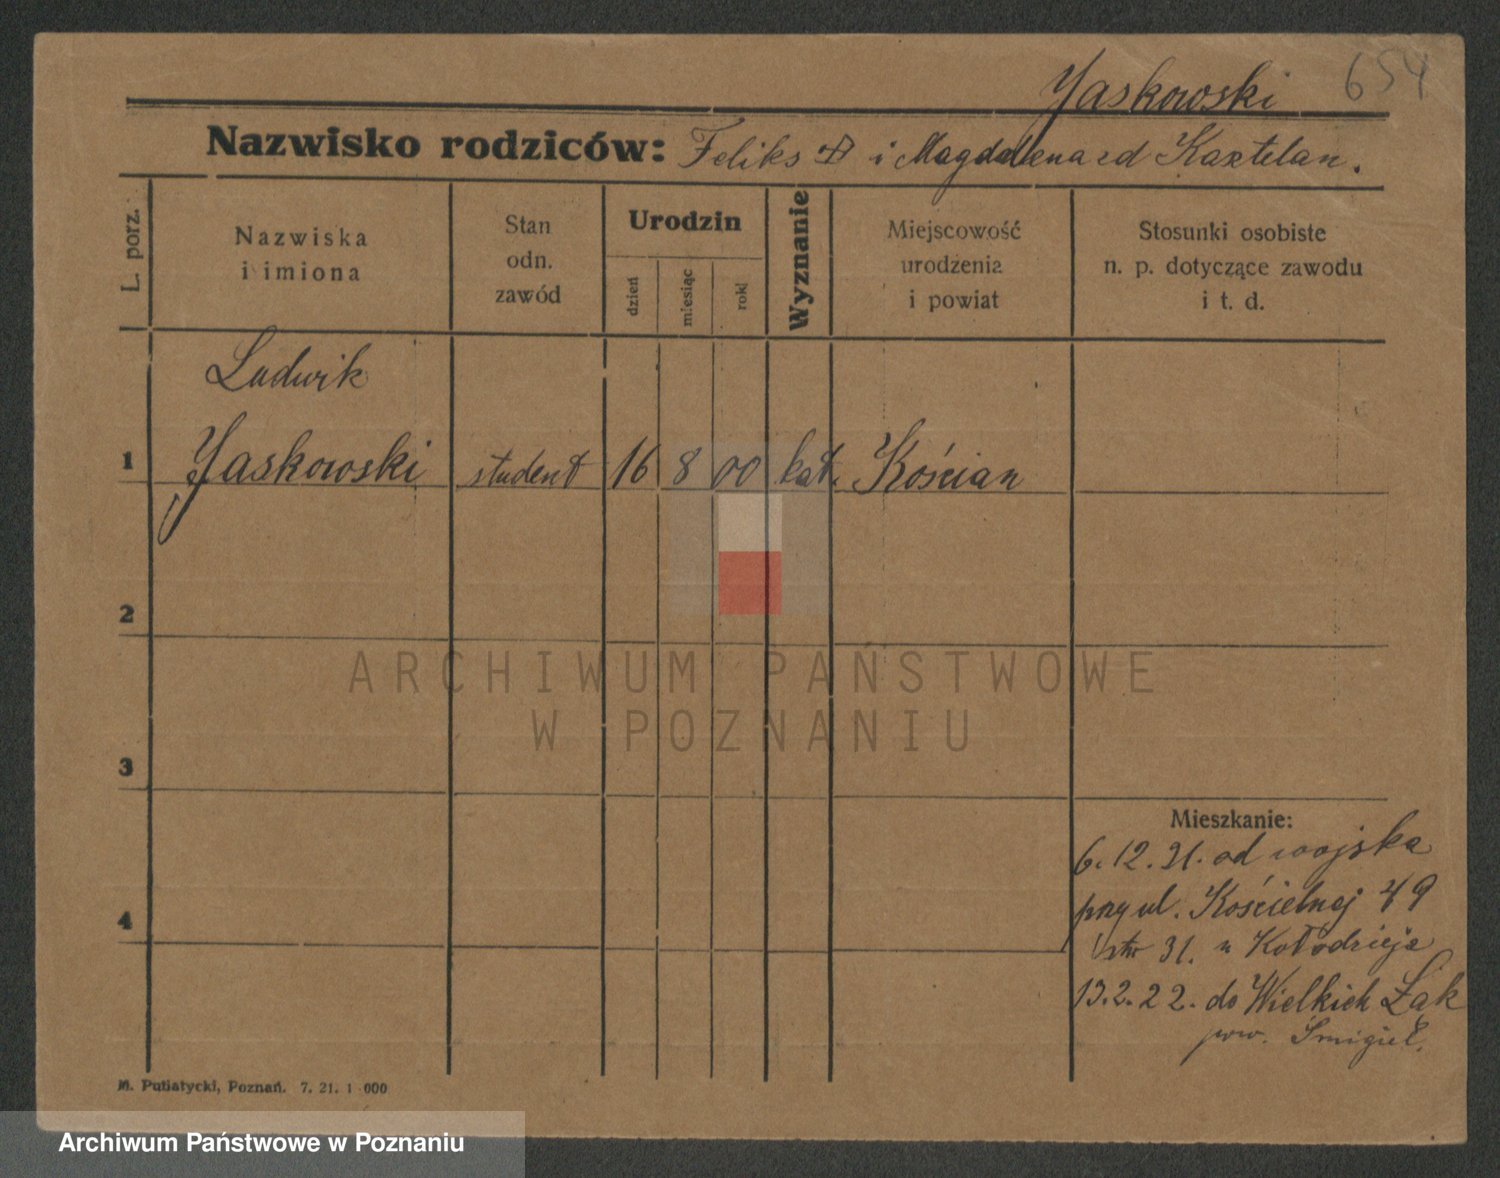 Jaskowski 654
Nazwisko rodziców: Feliks i Magdalena zd Kaztelan.
L. porz.
Nazwiska
i imiona
Stan
odn.
zawód
Urodzin
dzień
miesiąc
rok
Wyznanie
Miejscowość
urodzenia
i powiat
Stosunki osobiste
n. p. dotyczące zawodu
i t. d.
Ludwik
1 Jaskowski student 16 8 00 kat. Kościan
2
ARCHIWUM PAŃSTWOWE
W POZNANIU
3
Mieszkanie:
6. 12. 21. od wojska
przy ul. Kościelnej 49
31. u Kołodzieja
4
13. 2. 22. do Wielkich Łąk
pow. Śmigiel.
M. Putiatycki, Poznań. 7. 21. 1 000
Archiwum Państwowe w Poznaniu